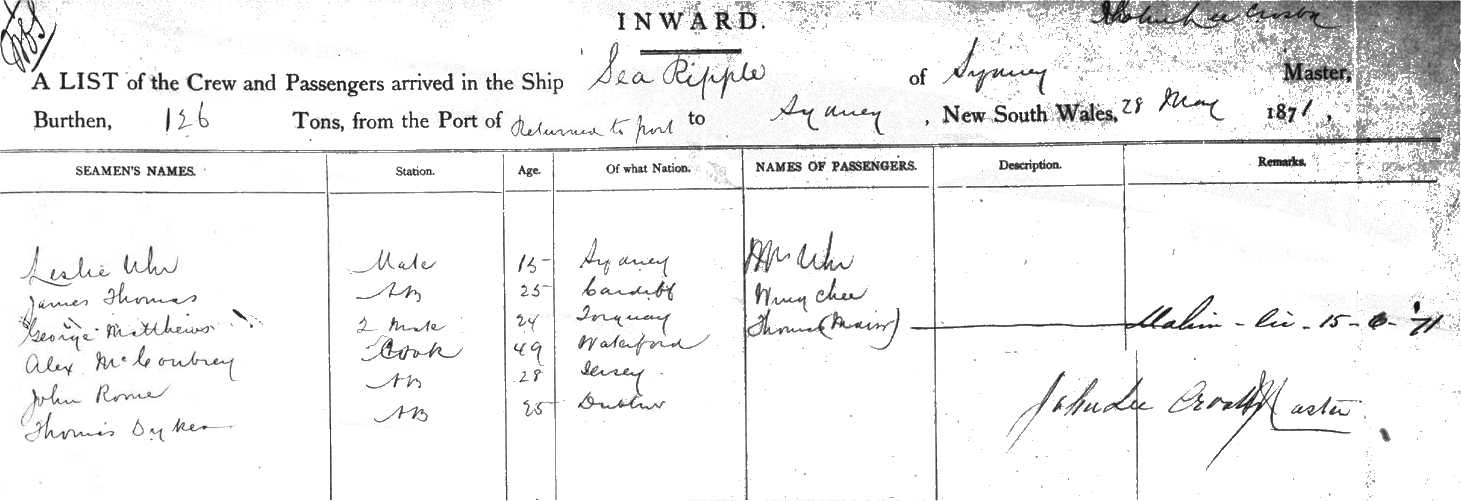 INWARD.
John Lee Crosby
A LIST of the Crew and Passengers arrived in the Ship Sea Ripple of Sydney Master,
Burthen, 126 Tons, from the Port of Returned to port to Sydney, New South Wales, 28 May 1871,
SEAMEN'S NAMES. Station. Age. Of what Nation. NAMES OF PASSENGERS. Description. Remarks.
Leslie Uhr Mate 15 Sydney Mrs Uhr
James Thomas AB 25 Cardiff Wing Chee
George Matthews 2 Mate 24 Torquay Thomas 15-6-'71
Alex McConbrey Cook 49 Waterford
John Rome AB 28 Jersey
Thomas Dykes AB 25 Dublin
John Lee Master